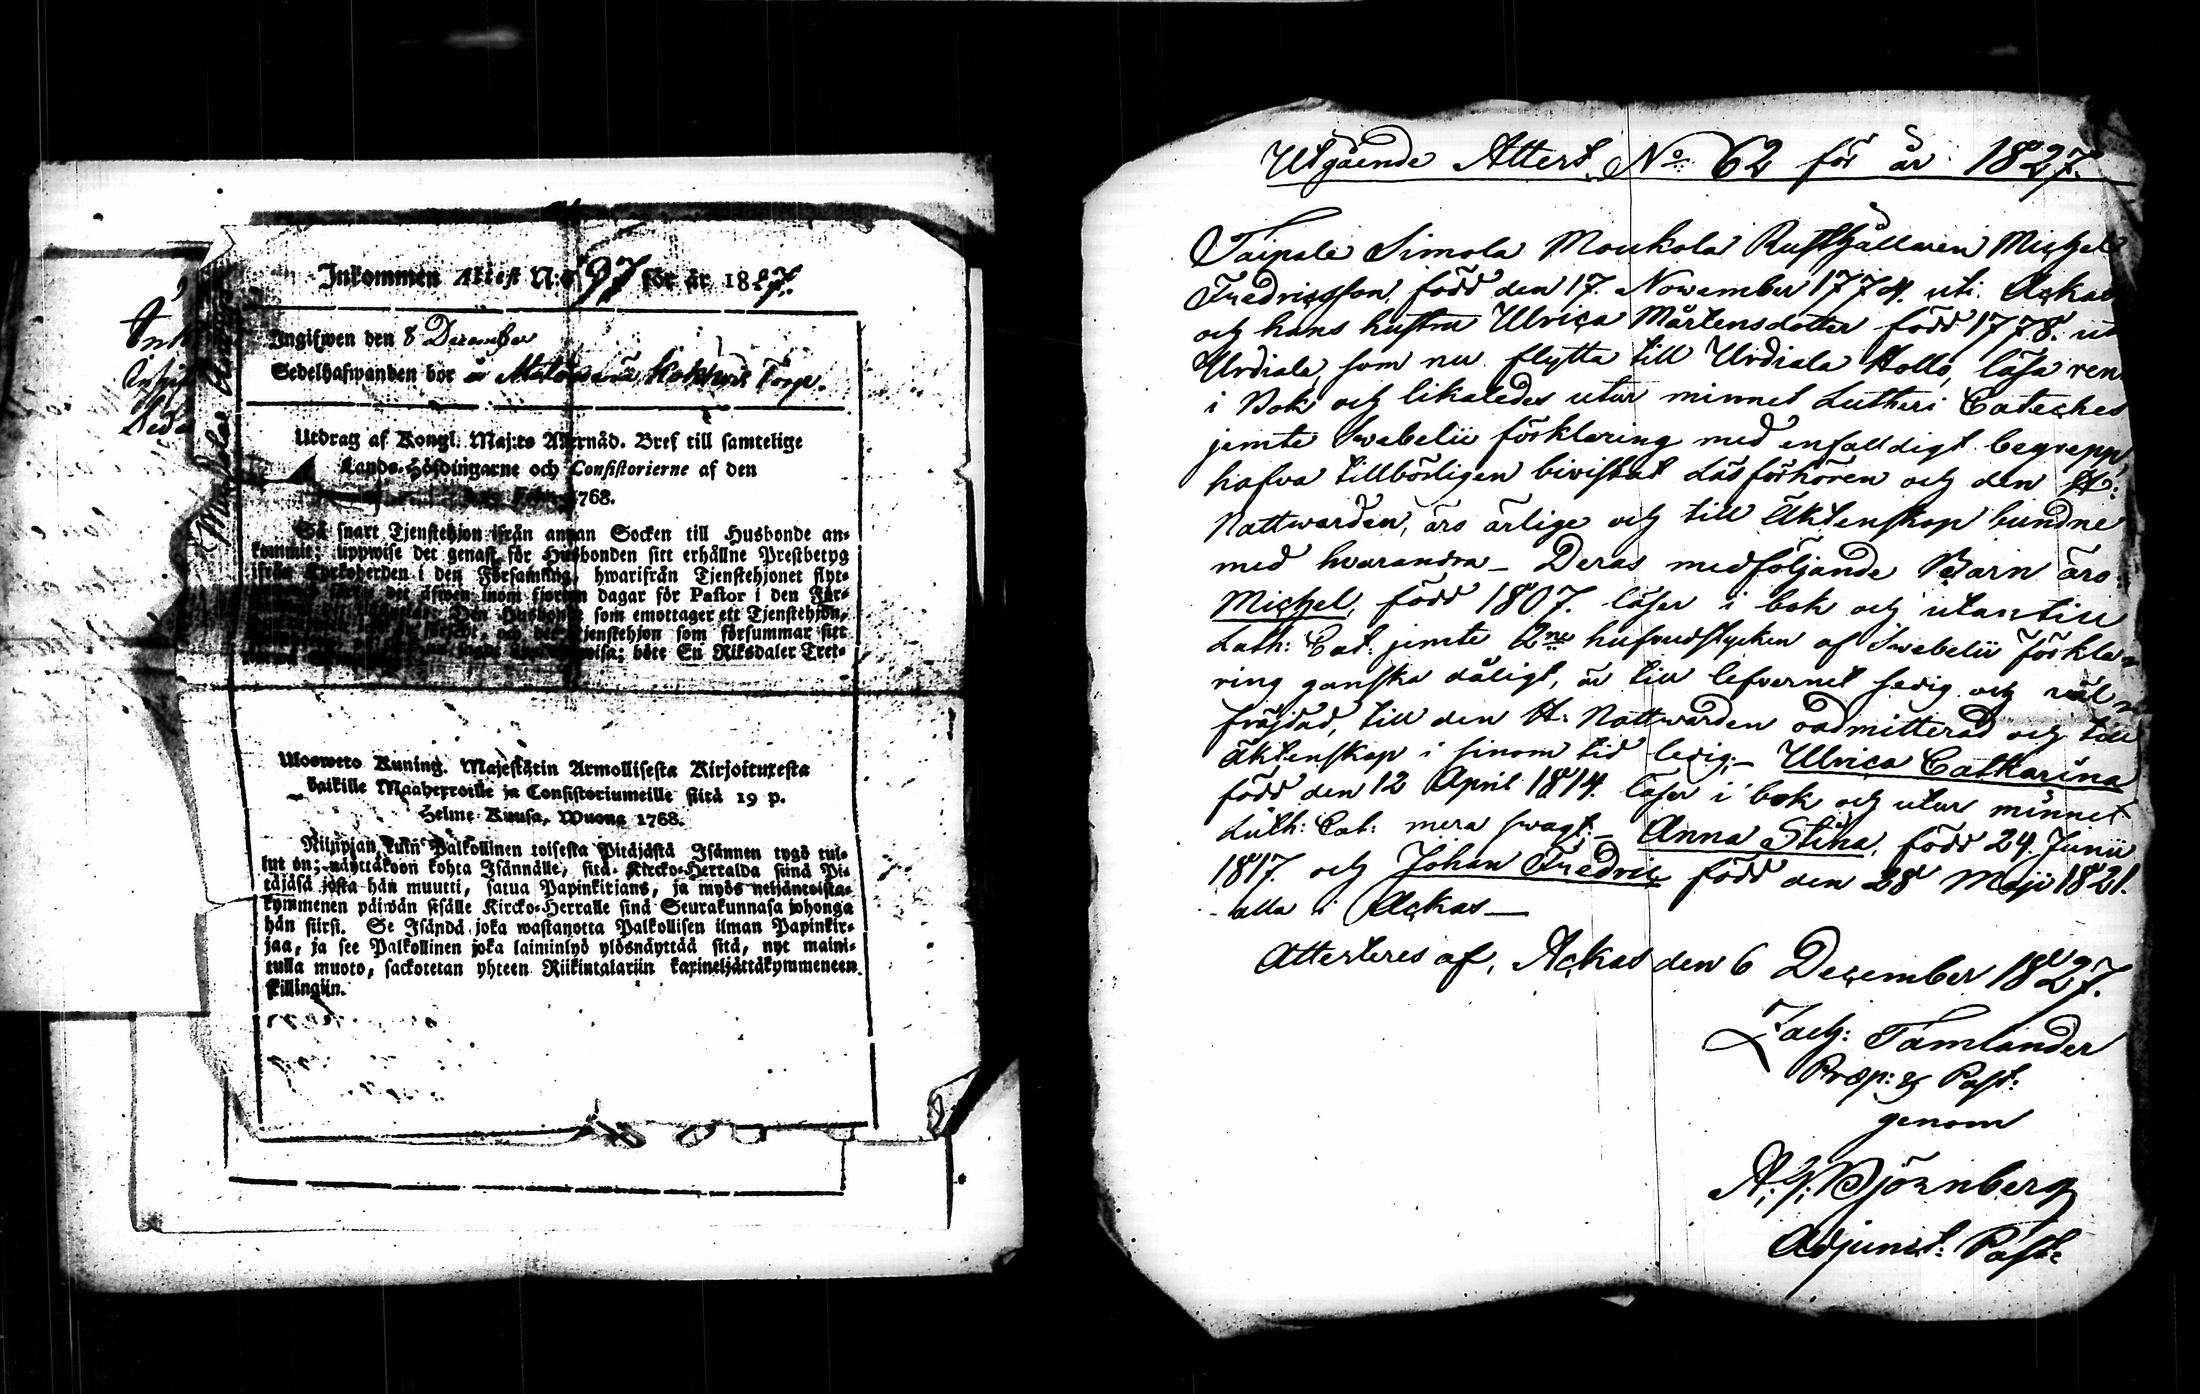 Inkommen Attest N:o 97 för år 1827.
Ingifwen den 8 December
Sedelhafwanden bor Torp.
Utdrag af Kongl. Maj:ts Allernåd. Bref till samtelige
Lands-Höfdingarne och Consistorierne af den
1768.
Så snart Tjenstehjon ifrån annan Socken till Husbonde an-
kommit; uppwise det genast för Husbonden sitt erhållne Prestbetyg
ifrån Kyrkoherden i den Församling, hwarifrån Tjenstehjonet flyt-
det äfwen inom fjorton dagar för Pastor i den För-
Den Husbonde som emottager ett Tjenstehjon,
och det Tjenstehjon som försummar sitt
böte En Riksdaler Tret-
Ulosweto Kuning. Majestätin Armollisesta Kirjoituxesta
kaikille Maaherroille ja Consistoriumeille siitä 19 p.
Helme-Kuusa, Wuona 1768.
Niinpian kuin Palkollinen toisesta Pitäjästä Isännen tygö tul-
lut on; näyttäkoon kohta Isännälle, sitä Kircko-Herralda siinä Pi-
täjäsä josta hän muutti, saatua Papinkirjans, ja myös neljäntoista-
kymmenen päiwän sisälle Kircko-Herralle sinä Seurakunnasa johonga
hän siirsi. Se Isändä joka wastanotta Palkollisen ilman Papinkir-
jaa, ja see Palkollinen joka laiminlyö ylösnäyttää sitä, nyt maini-
tulla muoto, sackotetan yhteen Riikintalariin kaxineljättäkymmeneen
killingiin.
Utgående Attest No: 62 för år 1827.
Taipale Simola Moukola Rusthållaren Michel
Fredricsson, född den 17. November 1774. uti Ackas
och hans hustru Ulrica Mårtensdotter född 1778. ut
Urdiala, som nu flytta till Urdiala Hollo, läsa ren
i Bok och likaledes utur minnet Lutheri Cateches
jemte Swebelii förklaring med enfalldigt begrepp,
hafva tillbörligen biwistat Läsförhören och den H:
Nattwarden, äro ärlige och till Äktenskap bundne
med hvarandra – Deras medföljande Barn äro:
Michel, född 1807. läser i bok och utantill
Luth: Cat: jemte 2ne hufvudstycken af Swebelii förkla-
ring ganska dåligt, är till lefvernet sedig och väl-
fräjdad, till den H: Nattwarden oadmitterad och till
Äktenskap i sinom tid ledig; – Ulrica Catharina
född den 12 April 1814. läser i bok och utur minnet
Luth: Cat: mera svagt: – Anna Stina, född 24. Junii
1817. och Johan Fredric född den 28 Maji 1821.
alla i Ackas –
Attesteres af, Ackas den 6 December 1827.
Zach: Tamlander
Præp: & Past:
genom
A: J: Björnberg
Adjunct: Past: